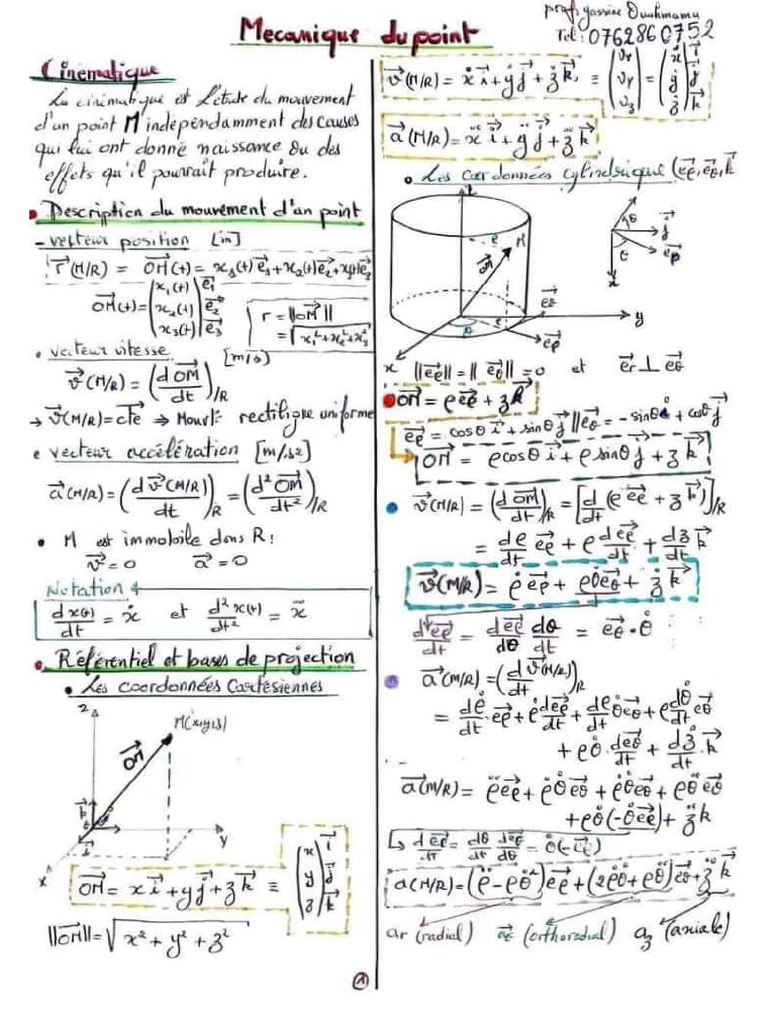 Mecanique du point
prof: yassine Ouahmama
Tel: 0762860752
Cinématique
La cinématique est l'étude du mouvement
d'un point M indépendamment des causes
qui lui ont donné naissance ou des
effets qu'il pourrait produire.
• Description du mouvement d'un point
- vecteur position [m]
r⃗(M/R) = OM⃗(t) = x₁(t)e⃗₁+x₂(t)e⃗₂+x₃(t)e⃗₃
OM⃗(t) = (x₁(t) x₂(t) x₃(t)) | e⃗₁ e⃗₂ e⃗₃
r = ||OM⃗||
= √(x₁²+x₂²+x₃²)
• vecteur vitesse [m/s]
v⃗(M/R) = (dOM⃗/dt)/R
→ v⃗(M/R) = cte⃗ ⇒ Mouvt: rectiligne uniforme
• vecteur accélération [m/s²]
a⃗(M/R) = (dv⃗(M/R)/dt)/R = (d²OM⃗/dt²)/R
• M est immobile dans R:
v⃗ = 0 a⃗ = 0
Notation
dx(t)/dt = ẋ et d²x(t)/dt² = ẍ
• Référentiel et bases de projection
• Les coordonnées Cartésiennes
z
M(x,y,z)
OM⃗
k⃗
i⃗
x
y
OM⃗ = x i⃗ + y j⃗ + z k⃗ ≡ (x y z) | i⃗ j⃗ k⃗
||OM⃗|| = √(x² + y² + z²)
v⃗(M/R) = ẋ i⃗ + ẏ j⃗ + ż k⃗ ≡ (vx vy vz) = (ẋ ẏ ż) | i⃗ j⃗ k⃗
a⃗(M/R) = ẍ i⃗ + ÿ j⃗ + z̈ k⃗
• Les coordonnées cylindrique (e⃗ρ, e⃗θ, k
M
OM⃗
e⃗θ
y
e⃗ρ
x
θ
j⃗
e⃗ρ
θ
||e⃗ρ|| = || e⃗θ || = 0 et e⃗r ⊥ e⃗θ
• OM⃗ = ρ e⃗ρ + z k⃗
e⃗ρ = cosθ i⃗ + sinθ j⃗ || e⃗θ = -sinθ i⃗ + cosθ j⃗
OM⃗ = ρ cosθ i⃗ + ρ sinθ j⃗ + z k⃗
• v⃗(M/R) = (dOM⃗/dt)/R = [d/dt (ρ e⃗ρ + z k⃗)]/R
= dρ/dt e⃗ρ + ρ de⃗ρ/dt + dz/dt k⃗
v⃗(M/R) = ρ̇ e⃗ρ + ρθ̇ e⃗θ + ż k⃗
de⃗ρ/dt = de⃗ρ/dθ dθ/dt = e⃗θ · θ̇
• a⃗(M/R) = (dv⃗(M/R)/dt)R
= dρ̇/dt · e⃗ρ + ρ̇ de⃗ρ/dt + dρ/dt θ̇ e⃗θ + ρ dθ̇/dt e⃗θ
+ ρθ̇ · de⃗θ/dt + dż/dt · k⃗
a⃗(M/R) = ρ̈ e⃗ρ + ρ̇θ̇ e⃗θ + ρ̇θ̇ e⃗θ + ρθ̈ e⃗θ
+ ρθ̇(-θ̇ e⃗ρ) + z̈ k
a(M/R) = (ρ̈ - ρθ̇²) e⃗ρ + (2ρ̇θ̇ + ρθ̈) e⃗θ + z̈ k⃗
ar (radial) (orthoradial) az (axiale)
1